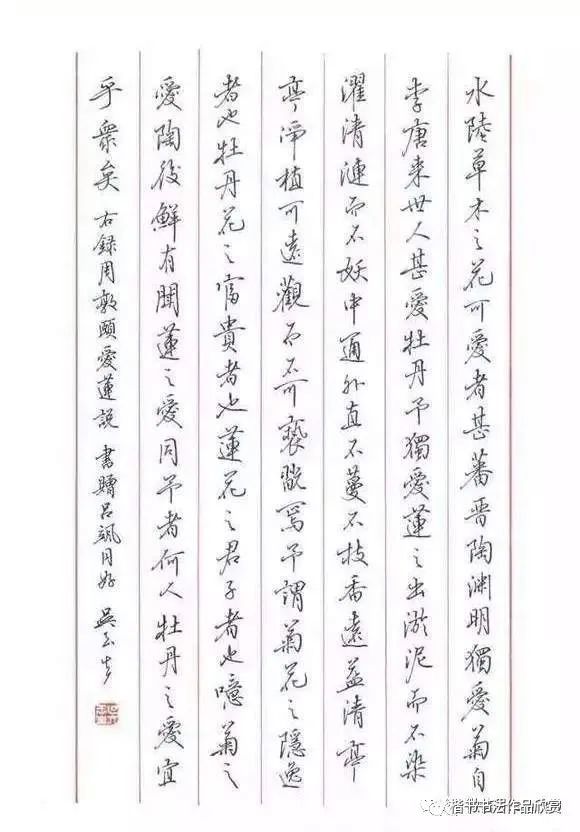 水陸草木之花可愛者甚蕃晋陶渊明獨愛菊自
李唐来世人甚愛牡丹予獨愛蓮之出淤泥而不染
濯清漣而不妖中通外直不蔓不枝香遠益清亭
亭淨植可遠觀而不可褻翫焉予謂菊花之隱逸
者也牡丹花之富貴者也蓮花之君子者也噫菊之
愛陶後鮮有聞蓮之愛同予者何人牡丹之愛宜
乎衆矣 右録周敦頤愛蓮説 書贈吕颯同好 吴玉生
楷书书法作品欣赏